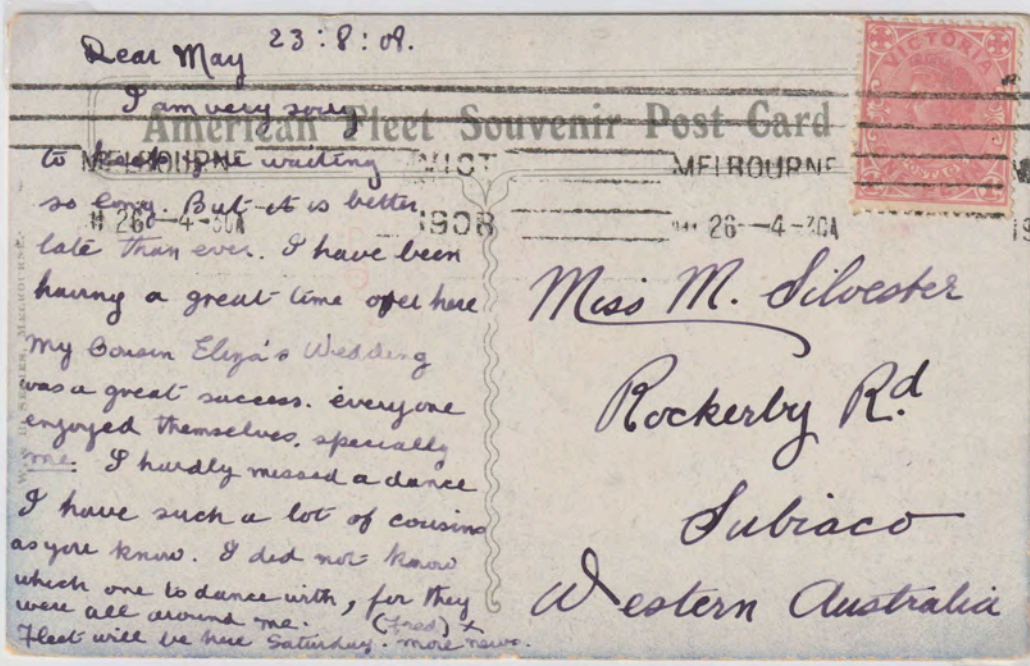 Dear May 23:8:08.
I am very sorry
to keep you waiting
so long. But it is better
late than ever. I have been
having a great time over here
My Cousin Eliza's Wedding
was a great success. everyone
enjoyed themselves, specially
me. I hardly missed a dance
I have such a lot of cousins
as you know. I did not know
which one to dance with, for they
were all around me. (Fred) x
Fleet will be here Saturday. more news.
American Fleet Souvenir Post Card
MELBOURNE VICT MELBOURNE
26 -4- 30A 1908 26 -4-30A
VICTORIA
Miss M. Silvester
Rockerby Rd.
Subiaco
Western Australia
SERIES, MELBOURNE.